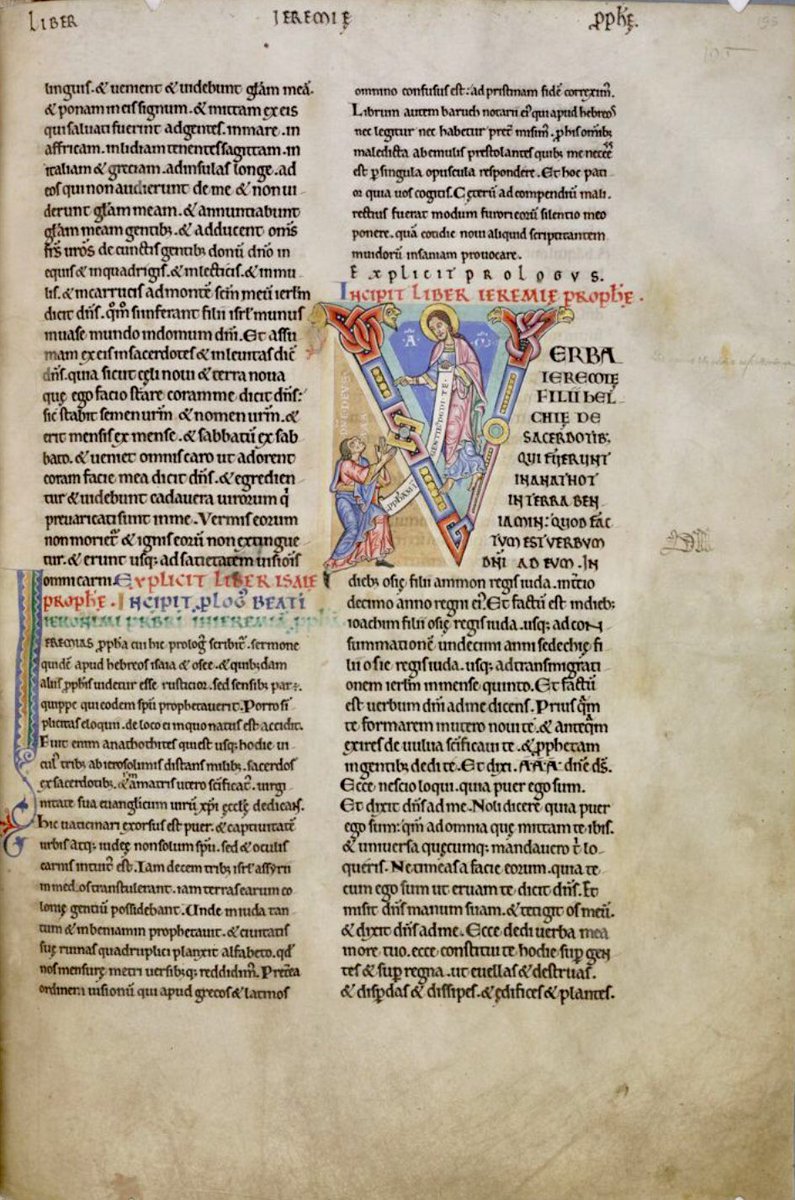 LIBER IEREMIE PPHE.
linguis. & uenient & uidebunt glam mea.
& ponam in eis signum. & mittam ex eis
qui saluati fuerint ad gentes. in mare. in
affricam. in lidiam tenentes sagittam. in
italiam & greciam. ad insulas longe. ad
eos qui non audierunt de me. & non ui
derunt glam meam. & annuntiabunt
glam meam gentib;. & adducent oms
frs uros de cunctis gentib; donu dno in
equis & in quadrigis. & in lecticis. & in mu
lis. & in carrucis ad monte scm meu ierlm
dicit dns. qm si inferant filii isrl munus
in uase mundo in domum dni. Et assu
mam ex eis in sacerdotes & in leuitas dic
dns. quia sicut celi noui & terra noua
que ego facio stare coram me dicit dns:
sic stabit semen urm. & nomen urm. &
erit mensis ex mense. & sabbatu ex sab
bato. & ueniet omnis caro ut adorent
coram facie mea dicit dns. & egredien
tur & uidebunt cadauera uirorum qi
preuaricati sunt in me. Vermis eorum
non moriet & ignis eorum non extingue
tur. & erunt usq; ad satietatem uisiois
omni carni EXPLICIT LIBER ISAIE
PROPHE. INCIPIT PLOG BEATI
IEREMIAS ppha cui hic prolog scribit. sermone
quide apud hebreos isaia & osee. & quib;dam
aliis pphis uidetur esse rusticior. sed sensib; par e.
quippe qui eodem spu prophetauerit. Porro si
plicitas eloquii. de loco ei in quo natus est accidit.
Fuit enim anathothites qui est usq; hodie ui
cul trib; ab ierosolimis distans milib;. sacerdos
ex sacerdotib;. & a matris utero scificat. uirgi
nitate sua euanglicum uiru xpi eccle dedicans.
Hic uaticinari exorsus est puer. & captiuitate
urbis atq; iudee non solum spu. sed & oculis
carnis intuit est. Iam decem trib; isrl assyrii
in medos transtulerant. iam terras earum co
lonie gentiu possidebant. Unde in iuda tan
tum & in beniamin prophetauit. & ciuitatis
sue ruinas quadruplici planxit alfabeto. qd
nos mensure metri uersib;q; reddidim. Preterea
ordinem uisionu qui apud grecos & latinos
omnino confusus est: ad pristinam fide correxim.
Librum autem baruch notarii ei qui apud hebreos
nec legitur nec habetur preterm misim. p his omib;
maledicta ab emulis prestolantes quib; me necee
est p singula opuscula respondere. Et hoc pati
or quia uos cogitis. Ceteru ad compendiu mali.
rectius fuerat modum furori eoru silentio meo
ponere. qua cotidie noui aliquid scriptitantem
inuidoru insaniam prouocare.
EXPLICIT PROLOGVS.
INCIPIT LIBER IEREMIE PROPHE.
A
VERBA
IEREMIE
FILII HEL
CHIE DE
SACERDOTIB;
QUI FUERUNT
IN ANATHOT
IN TERRA BEN
IAMIN: QUOD FAC
TUM EST UERBUM
DNI AD EUM. IN
dieb; osie filii ammon regis iuda. in tercio
decimo anno regni ei. Et factu est in dieb;
ioachim filii osie regis iuda. usq; ad con
summatione undecimi anni sedechie fi
lii osie regis iuda. usq; ad transmigrati
onem ierlm in mense quinto. Et factu
est uerbum dni ad me dicens. Prius qm
te formarem in utero noui te. & anteqm
exires de uulua scificaui te. & pphetam
in gentib; dedi te. Et dixi. A A A. dne ds.
Ecce nescio loqui. quia puer ego sum.
Et dixit dns ad me. Noli dicere quia puer
ego sum: qm ad omnia que mittam te ibis.
& uniuersa quecumq; mandauero t lo
queris. Ne timeas a facie eorum. quia te
cum ego sum ut eruam te dicit dns. Et
misit dns manum suam. & tetigit os meu.
& dixit dns ad me. Ecce dedi uerba mea
in ore tuo. ecce constitui te hodie sup gen
tes & sup regna. ut euellas & destruas.
& disperdas & dissipes. & edifices & plantes.